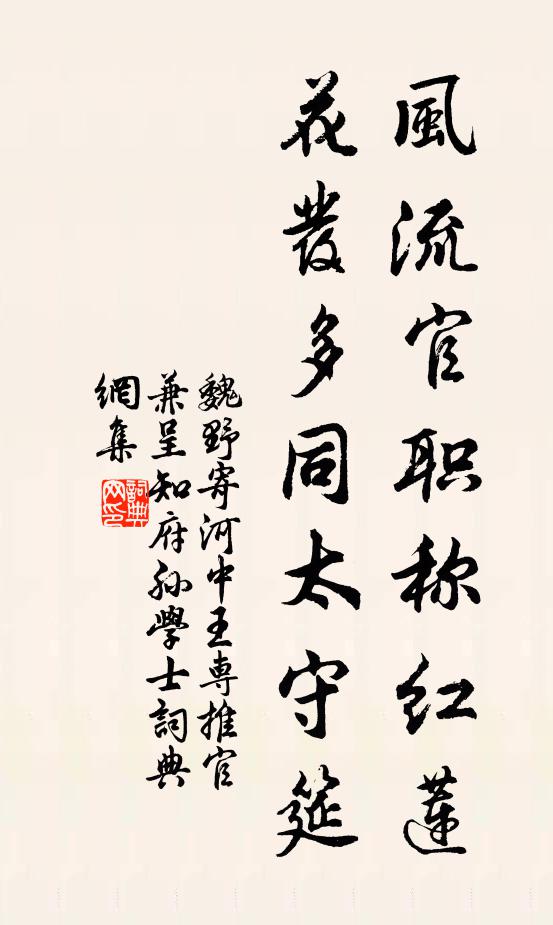 風流官职称红蓮
花發多同太守筵
魏野寄河中王專推官
兼呈知府孙學士詞典
網集
詞典網印